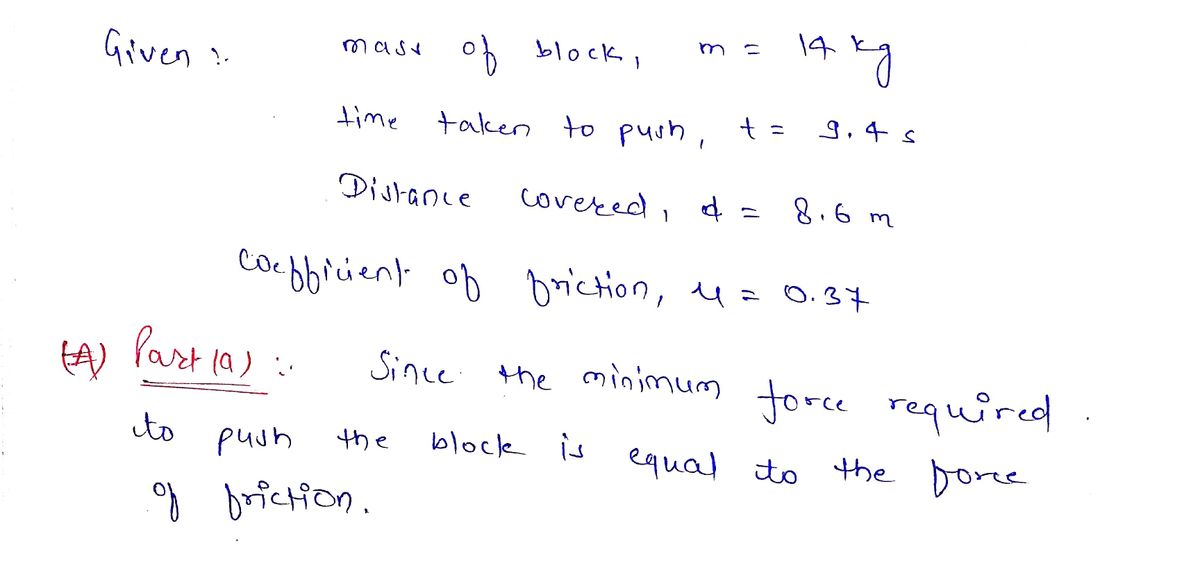 Given :. mass of block, m = 14 kg
time taken to push, t = 9.4 s
Distance covered, d = 8.6 m
coefficient of friction, μ = 0.37
(A) Part (a) :. Since the minimum force required.
to push the block is equal to the force
of friction.